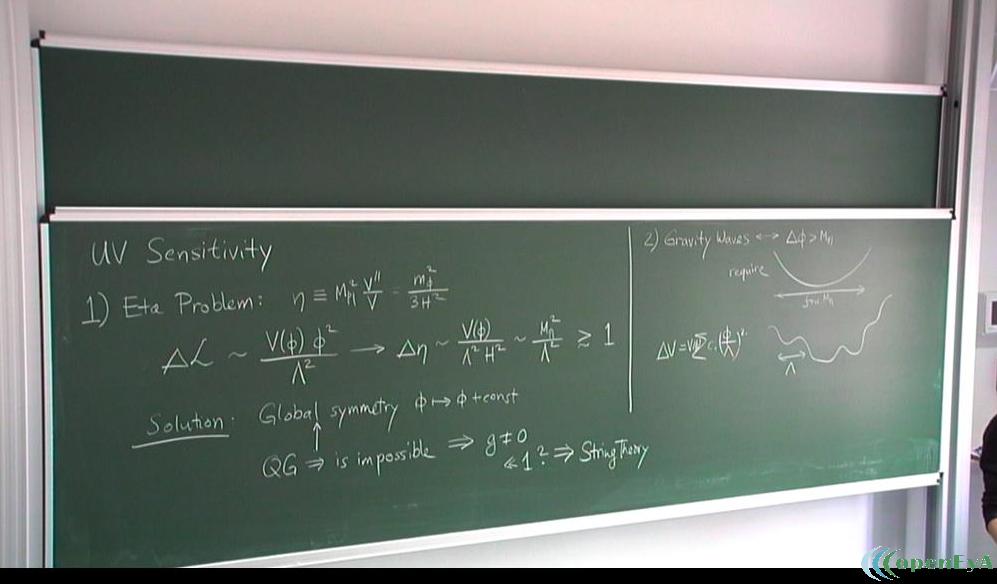 UV Sensitivity
1) Eta Problem: η ≡ M_Pl² V''/V = m_φ²/3H²
Δℒ ~ V(φ) φ²/Λ² → Δη ~ V(φ)/Λ²H² ~ M_Pl²/Λ² ≳ 1
Solution: Global symmetry φ ↦ φ + const
↑
QG ⇒ is impossible ⇒ g ≠ 0
≪ 1 ? ⇒ String Theory
2) Gravity Waves ↔ Δφ > M_Pl
require
ΔV = V(φ) Σ cᵢ (φ/Λ)
Λ
openEyA